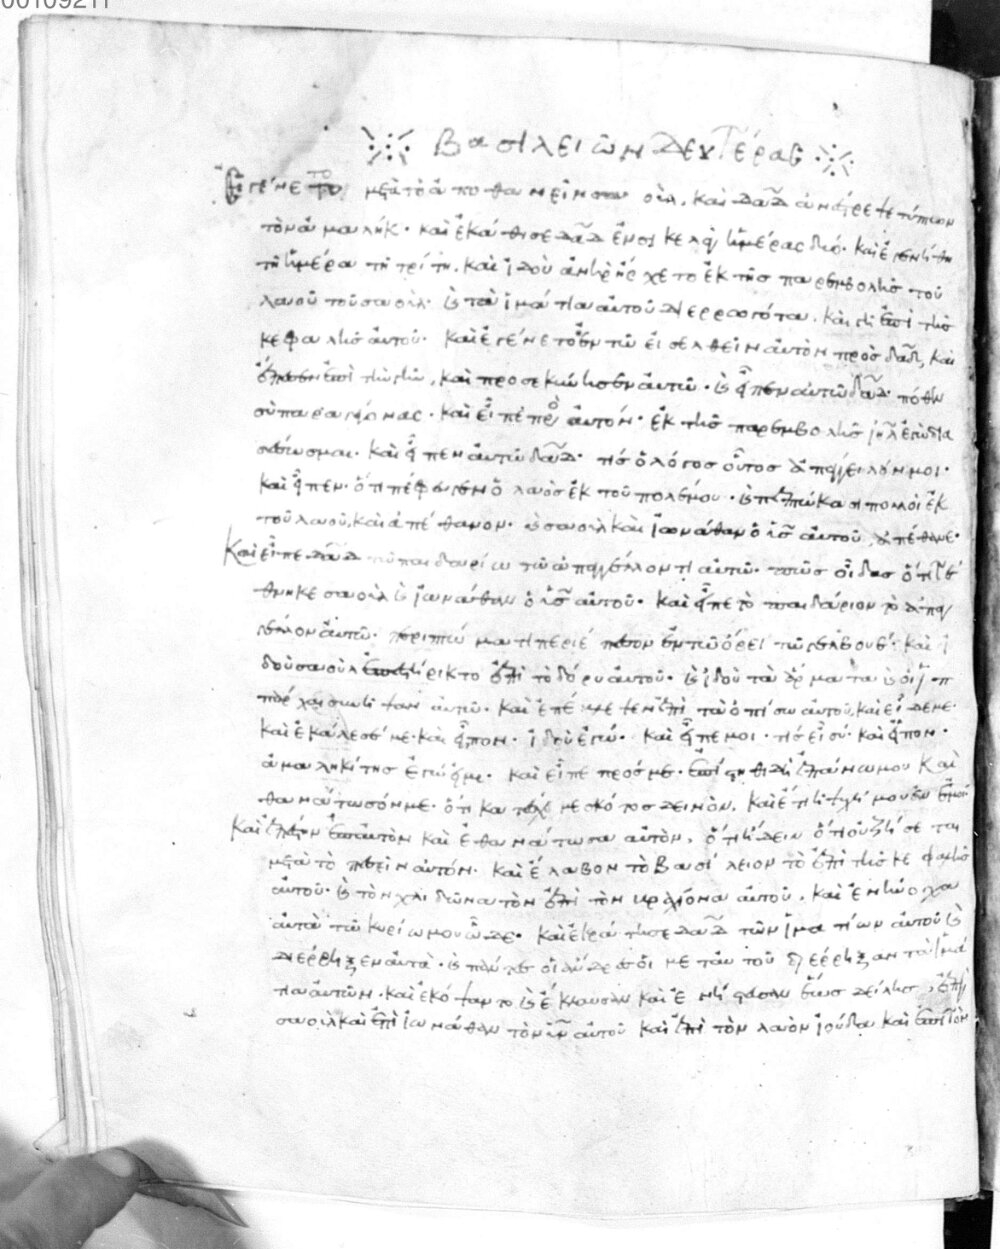 00109211
Βασιλειῶν Δευτέρας
Ἐγένετο μετὰ τὸ ἀποθανεῖν σαουλ. καὶ δαδ ἀνέστρεψε τύπτων
τὸν ἀμαλήκ. καὶ ἐκάθισε δαδ ἐν σικελὰγ ἡμέρας δύο. καὶ ἐγενήθη
τῇ ἡμέρα τῇ τρίτη. καὶ ἰδοὺ ἀνὴρ ἤρχετο ἐκ τῆς παρεμβολῆς τοῦ
λαοῦ τοῦ σαοὺλ. καὶ τὰ ἱμάτια αὐτοῦ διερρωγότα. καὶ γῆ ἐπὶ τῆς
κεφαλῆς αὐτοῦ. καὶ ἐγένετο ἐν τῶ εἰσελθεῖν αὐτὸν πρὸς δαδ, καὶ
ἔπεσεν ἐπὶ τὴν γῆν, καὶ προσεκύνησεν αὐτῶ. καὶ εἶπεν αὐτῶ δαδ. πόθεν
σὺ παραγέγονας. καὶ εἶπε πρὸ αὐτόν. ἐκ τῆς παρεμβολῆς ιηλ ἐγὼ δια
σέσωσμαι. καὶ εἶπεν αὐτῶ δαδ. τίς ὁ λόγος οὗτος ἀπάγγειλόν μοι.
καὶ εἶπεν. ὅτι πέφευγεν ὁ λαὸς ἐκ τοῦ πολέμου. καὶ πεπτώκασι πολλοὶ ἐκ
τοῦ λαοῦ, καὶ ἀπέθανον. καὶ σαοὺλ καὶ ἰωνάθαν ὁ υἱς αὐτοῦ, ἀπέθανε.
Καὶ εἶπε δαδ τῶ παιδαρίω τῶ ἀπαγγέλλοντι αὐτῶ. πῶς οἶδας ὅτι τέ
θνηκε σαοὺλ καὶ ἰωνάθαν ὁ υἱς αὐτοῦ. καὶ εἶπε τὸ παιδάριον τὸ ἀπαγ
γέλλον αὐτῶ. περιπτώματι περιέπεσον ἐν τῶ ὄρει τῶ γελβουέ. καὶ ἰ
δοὺ σαοὺλ ἐπεστήρικτο ἐπὶ τὸ δόρυ αὐτοῦ. καὶ ἰδοὺ τὰ ἅρματα καὶ οἱ ἱπ
πάρχαι συνῆψαν αὐτῶ. καὶ ἐπέβλεψεν ἐπὶ τὰ ὀπίσω αὐτοῦ, καὶ εἶδε με.
καὶ ἐκάλεσέ με. καὶ εἶπον. ἰδοὺ ἐγώ. καὶ εἶπε μοι. τίς εἶ σύ. καὶ εἶπον.
ἀμαληκίτης ἐγώ εἰμι. καὶ εἶπε πρός με. ἐπίστηθι δὴ ἐπάνω μου καὶ
θανάτωσόν με. ὅτι κατέσχέ με σκότος δεινὸν. καὶ ἔτι ἡ ψυχή μου ἐν ἐμοί
Καὶ ἐπέστην ἐπ' αὐτὸν καὶ ἐθανάτωσα αὐτὸν, ὅτι ἤδειν ὅτι οὐ ζήσεται
μετὰ τὸ πεσεῖν αὐτόν. καὶ ἔλαβον τὸ βασίλειον τὸ ἐπὶ τῆς κεφαλῆς
αὐτοῦ. καὶ τὸν χλιδῶνα τὸν ἐπὶ τὸν βραχίονα αὐτοῦ. καὶ ἐνήνοχα
αὐτὰ τῶ κυρίω μου ὧδε. καὶ ἐκράτησε δαδ τῶν ἱματίων αὐτοῦ καὶ
διέρρηξεν αὐτὰ. καὶ πάντες οἱ ἄνδρες οἱ μετ' αὐτοῦ διέρρηξαν τὰ ἱμά
τια αὐτῶν. καὶ ἐκόψαντο καὶ ἔκλαυσαν καὶ ἐνήστευσαν ἕως δείλης, ἐπὶ
σαοὺλ καὶ ἐπὶ ἰωνάθαν τὸν υἱν αὐτοῦ καὶ ἐπὶ τὸν λαὸν ἰούδα καὶ ἐπὶ τὸν